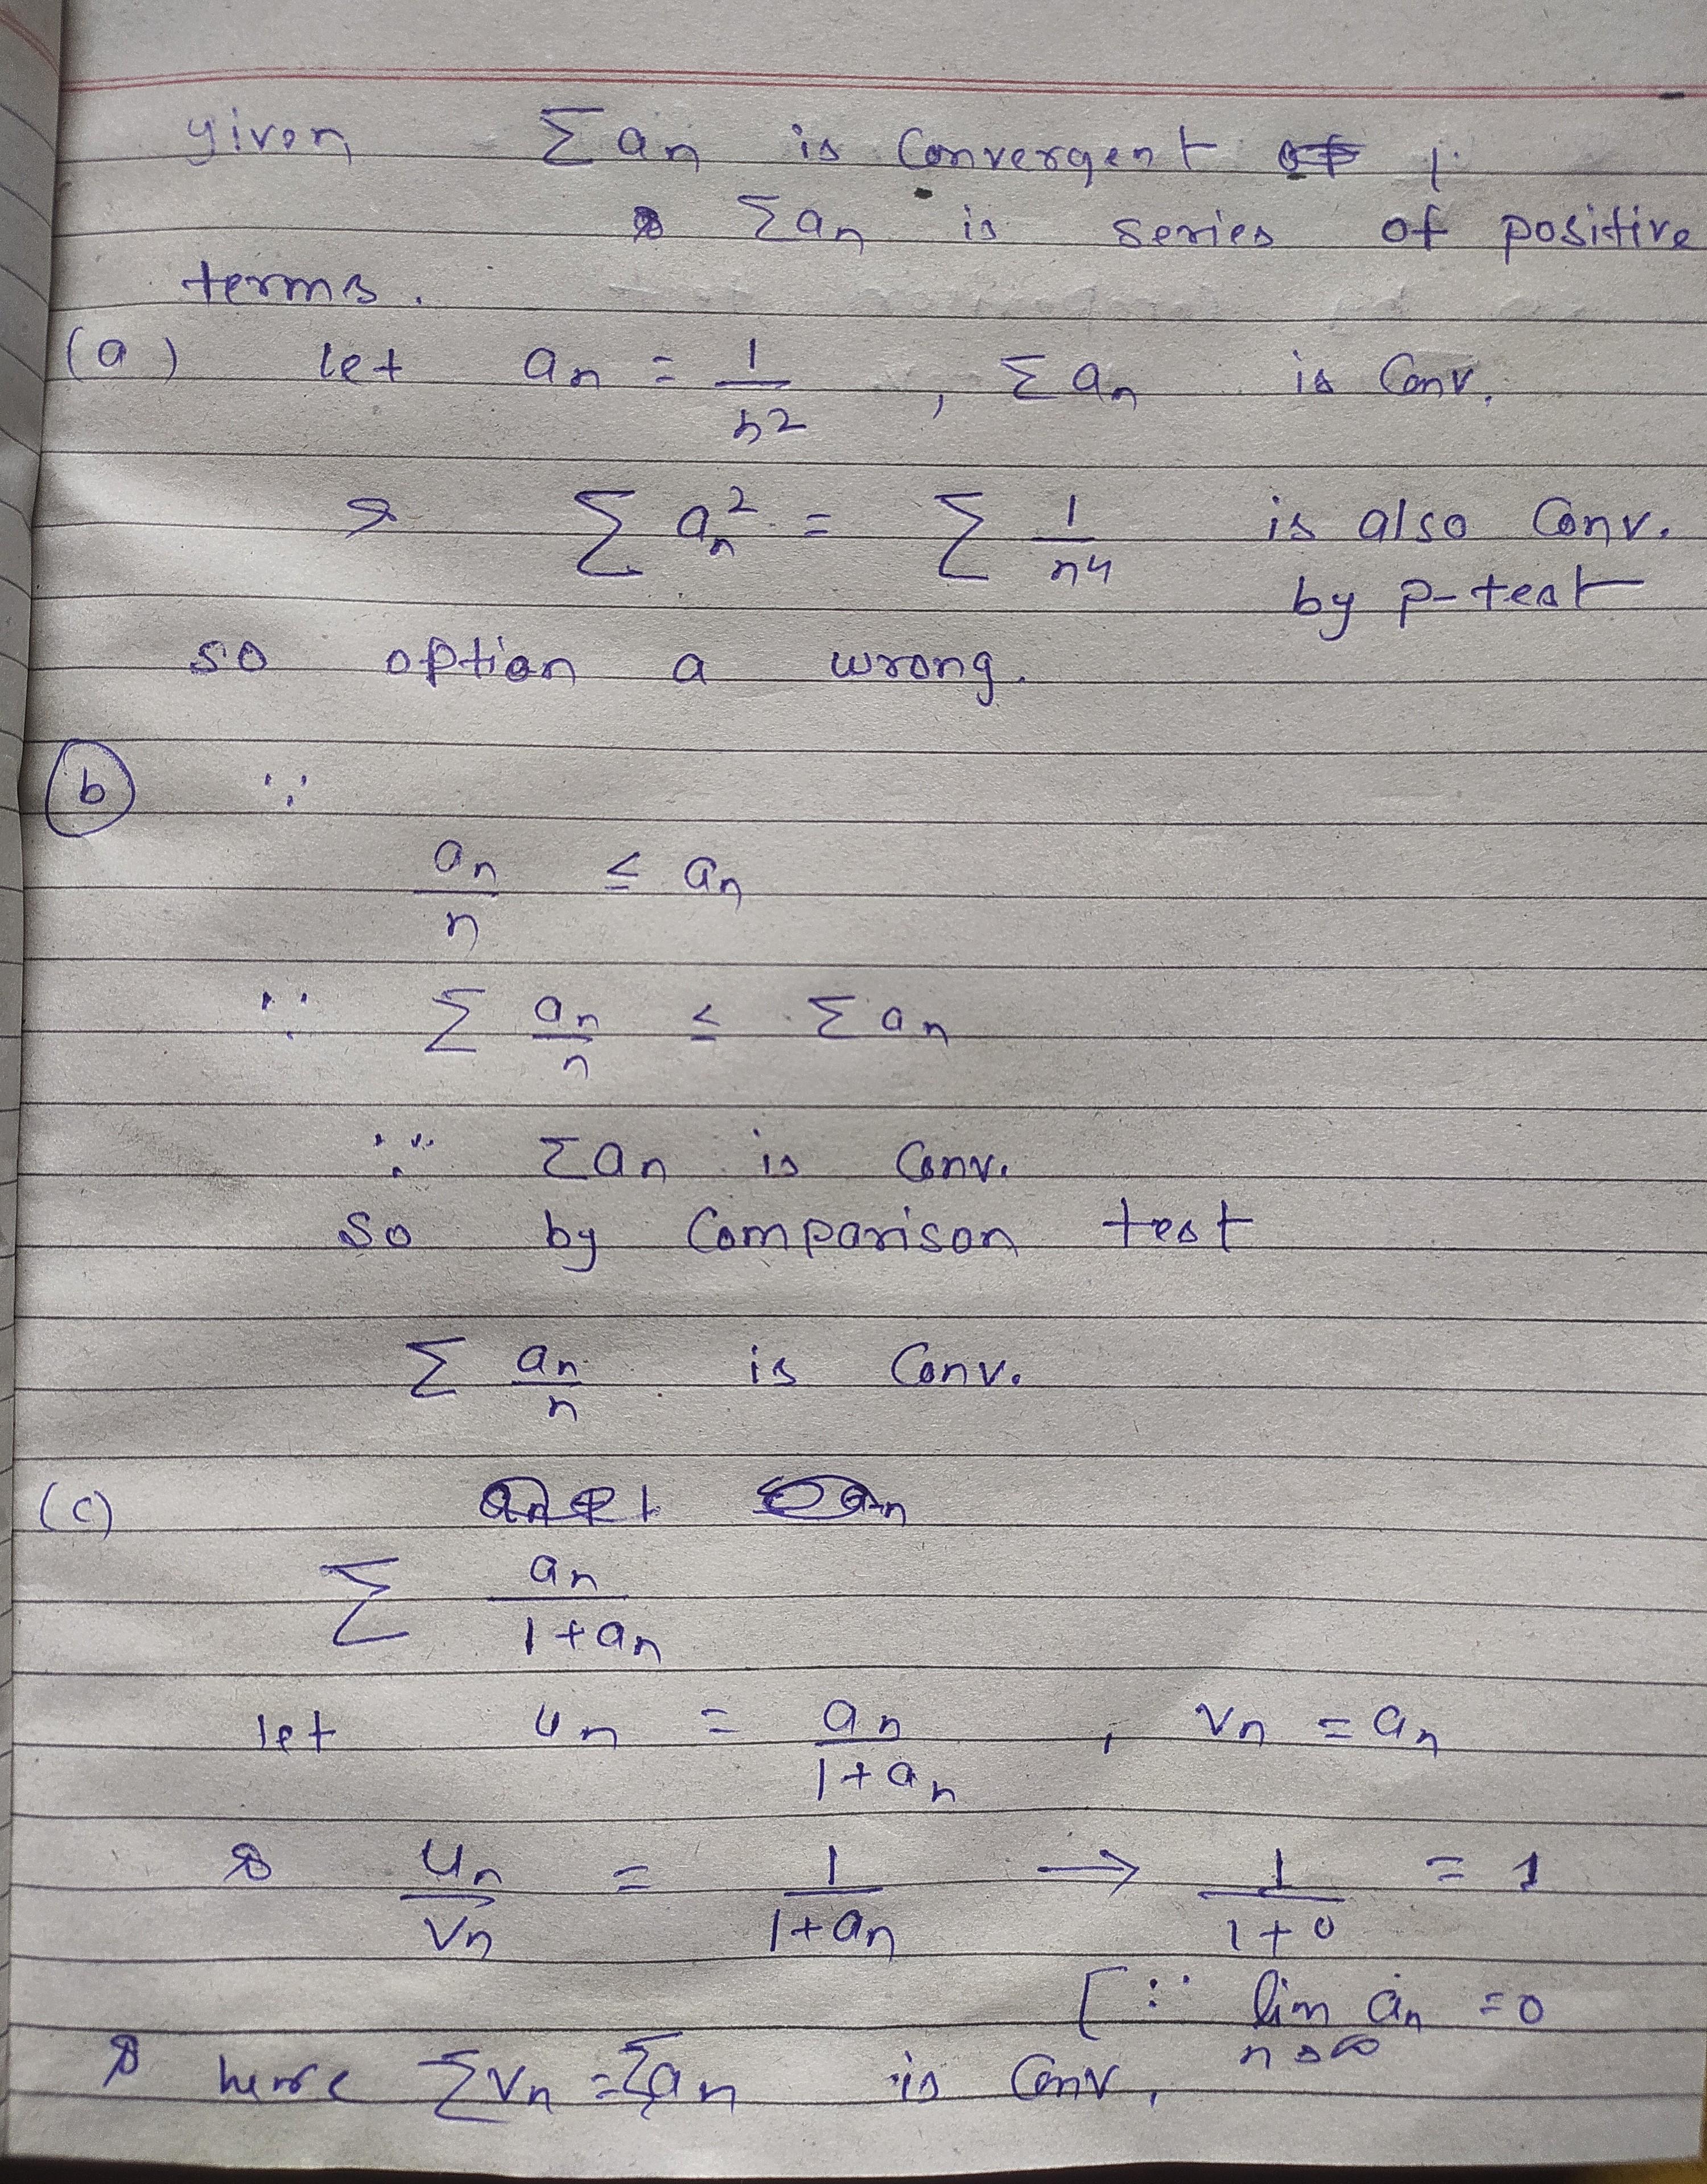 given Σ an is Convergent
Σ an is series of positive
terms.
(a) let an = 1/n2 , Σ an is Conv.
⇒ Σ an^2 = Σ 1/n4 is also Conv.
by p-test
so option a wrong.
(b) ∵
an/n ≤ an
∵ Σ an/n ≤ Σ an
∵ Σ an is Conv.
So by Comparison test
Σ an/n is Conv.
(c)
Σ an/(1+an)
let un = an/(1+an) , vn = an
⇒ un/vn = 1/(1+an) → 1/(1+0) = 1
[∵ lim an = 0
n→∞
⇒ here Σ vn = Σ an is Conv.